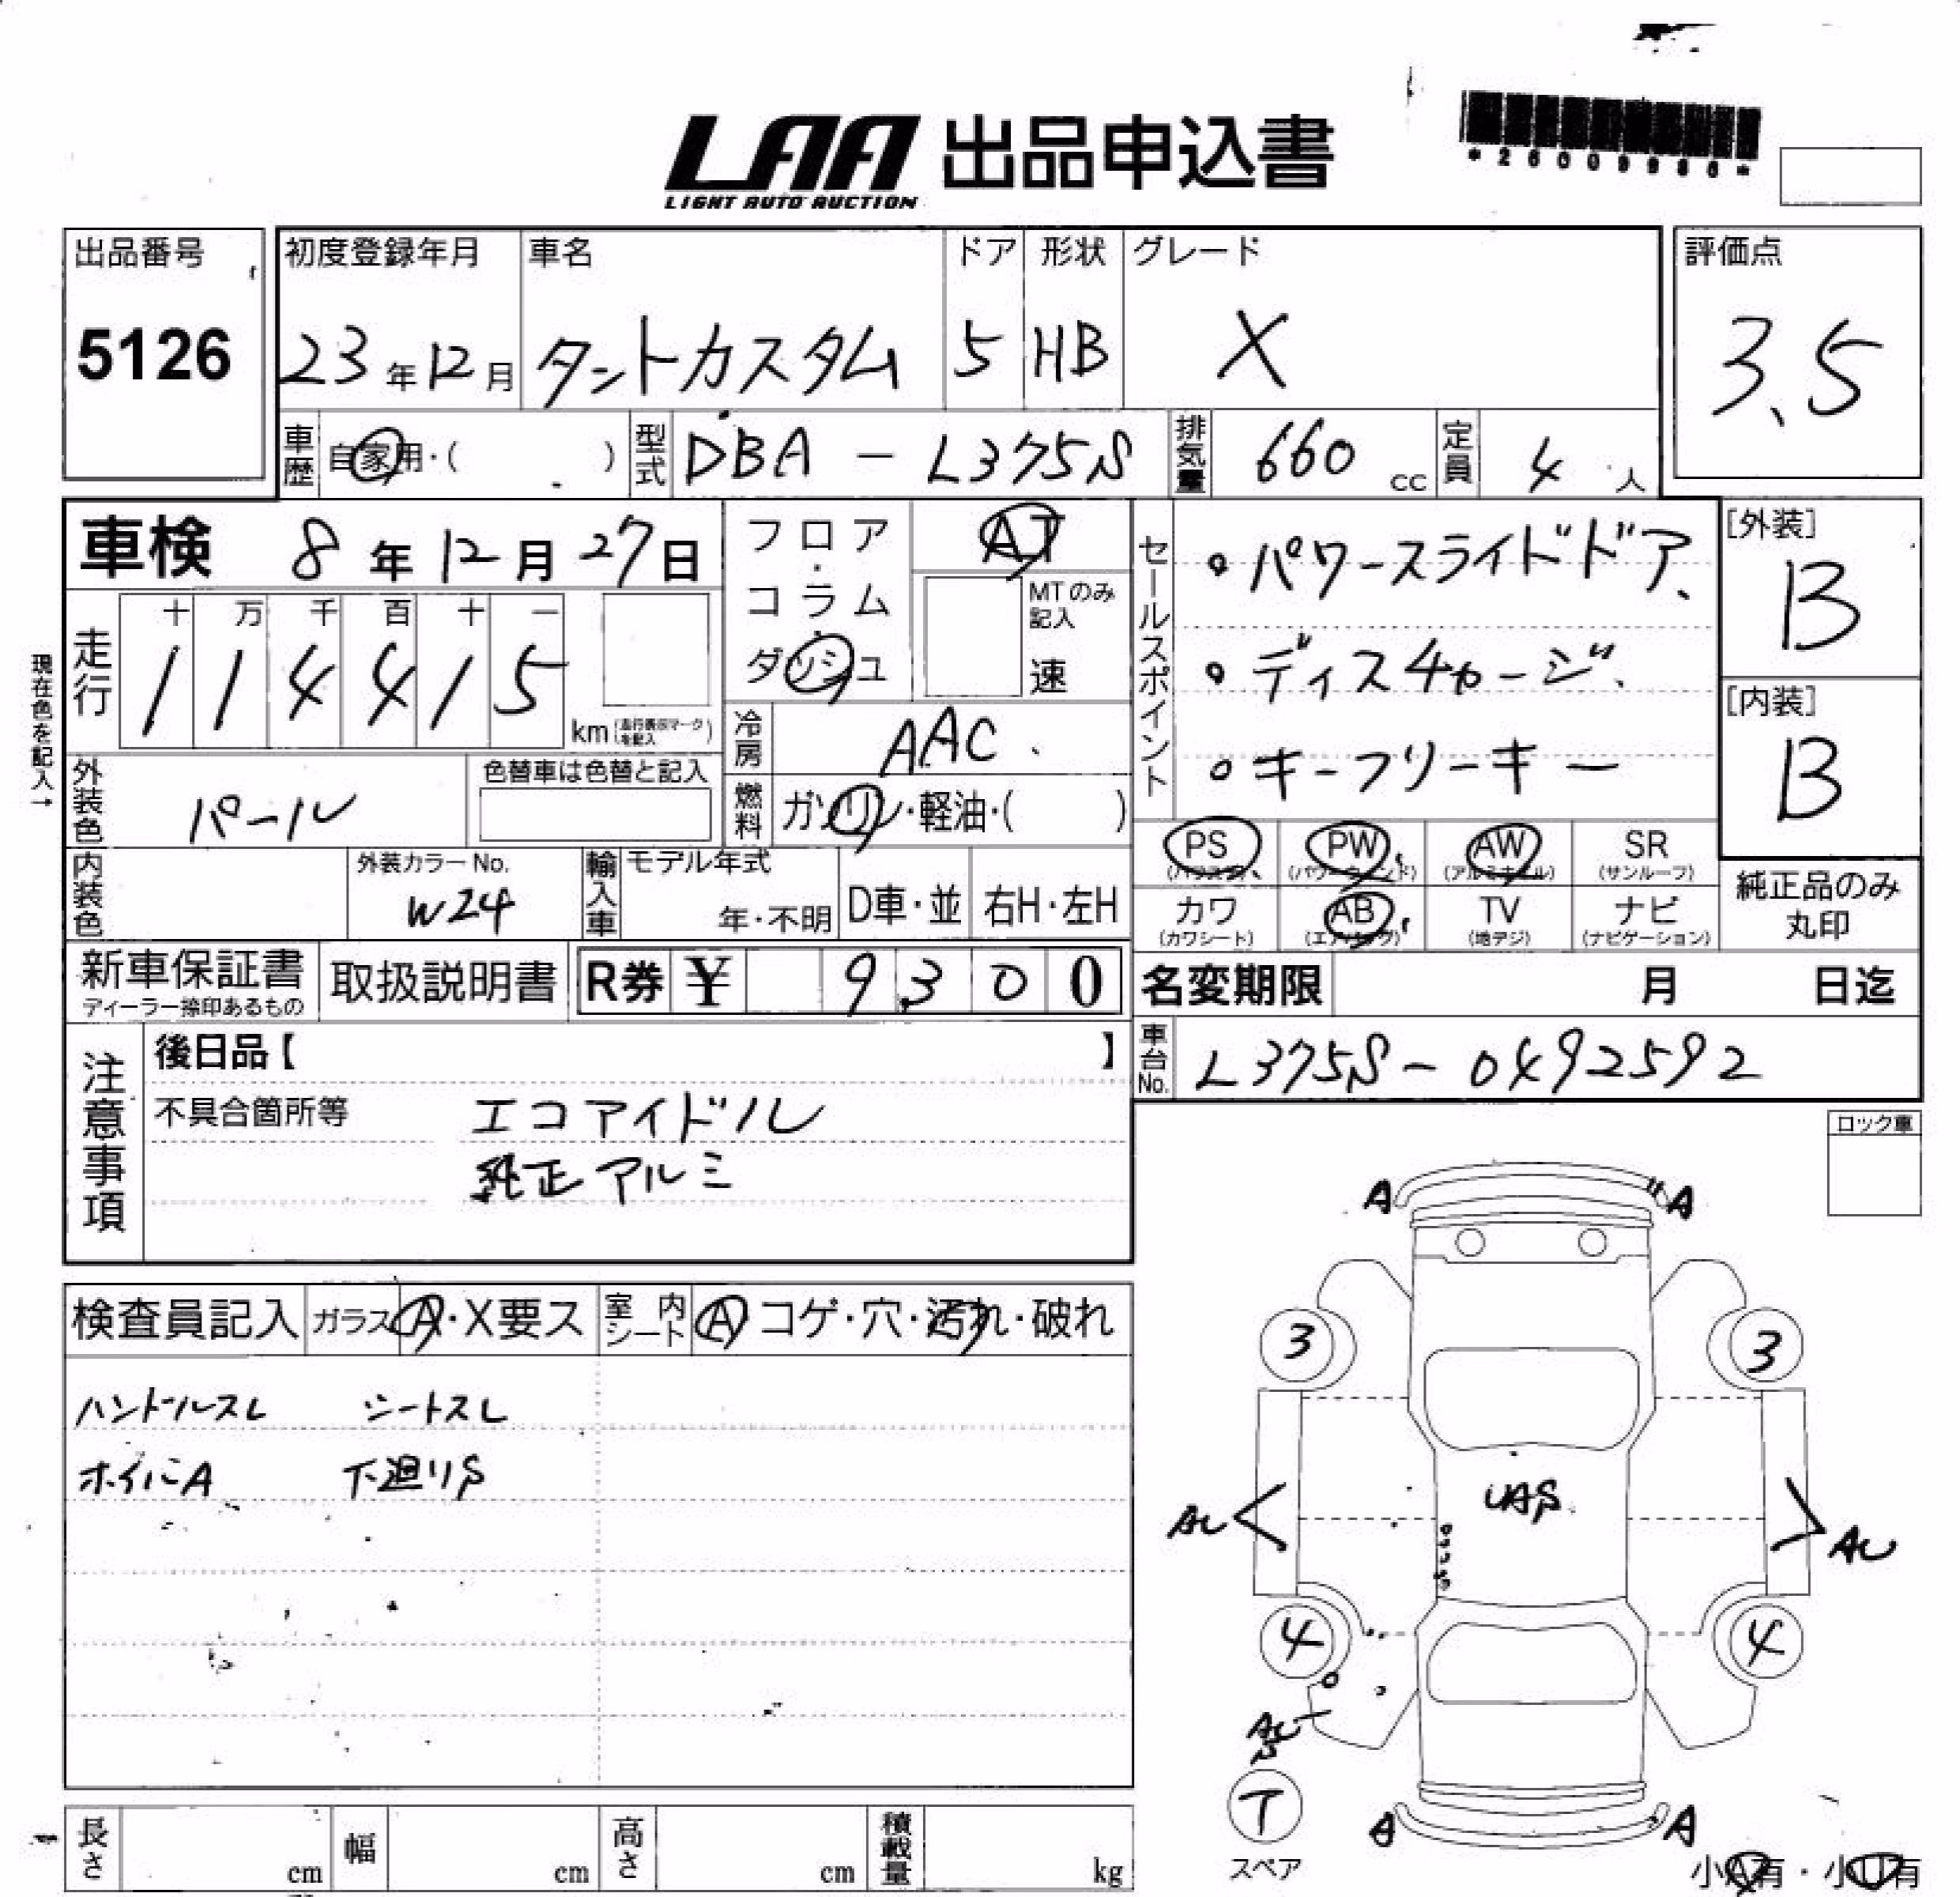 LAA 出品申込書
LIGHT AUTO AUCTION
出品番号
5126
初度登録年月
23年12月
車名
タントカスタム
ドア
5
形状
HB
グレード
X
評価点
3.5
車歴
自家用・( )
型式
DBA-L375S
排気量
660 cc
定員
4 人
車検 8年12月27日
現在色を記入→
走行
十 万 千 百 十 一
1 1 4 4 1 5
km
フロア・コラム・ダッシュ
AT
MTのみ記入
速
冷房
AAC
燃料
ガソリン・軽油・( )
外装色
パール
色替車は色替と記入
内装色
外装カラーNo.
W24
輸入車
モデル年式
年・不明
D車・並
右H・左H
セールスポイント
・パワースライドドア、
・ディスチャージ、
・キーフリーキー
[外装]
B
[内装]
B
PS
PW
(パワーウィンド)
AW
(アルミホイル)
SR
(サンルーフ)
カワ
(カワシート)
AB
(エアバッグ)
TV
(地デジ)
ナビ
(ナビゲーション)
純正品のみ
丸印
新車保証書
ディーラー捺印あるもの
取扱説明書
R券 ¥ 9,300
名変期限 月 日迄
車台No.
L375S-0492592
注意事項
後日品【 】
不具合箇所等
エコアイドル
純正アルミ
ロック車
検査員記入
ガラス
A・X要ス
室内シート
A コゲ・穴・汚れ・破れ
ハンドルスレ シートスレ
下廻りS
A A
3 3
UAS
AU AU
4 4
T
スペア
A A
小A有・小U有
長さ cm
幅 cm
高さ cm
積載量 kg